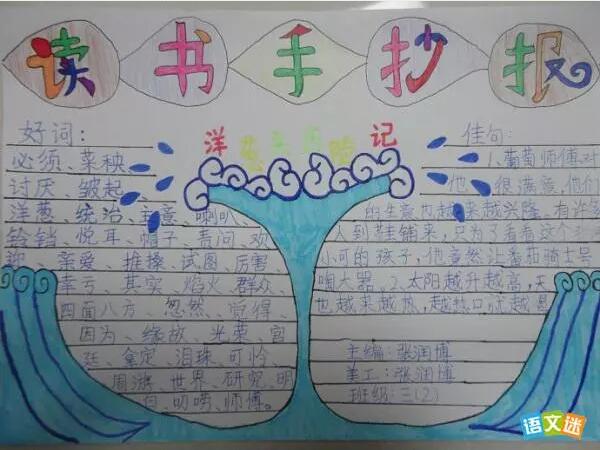 读书手抄报
洋葱头历险记
好词:
必须、菜秧、
讨厌、皱起、
洋葱、统治、主意、喇叭、
铃铛、悦耳、帽子、责问、欢
迎、亲爱、推搡、试图、厉害、
幸亏、其实、焰火、群众、
四面八方、忽然、觉得、
因为、缘故、光荣、宫
廷、拿定、泪珠、可怜、
周游、世界、研究、明
白、叨唠、师傅。
佳句:
1、葡萄师傅对
他 很满意,他们
的生意也越来越兴隆。有许多
人到鞋铺来,只为了看看这个
小可的孩子,他竟然让番茄骑士号
啕大 2、太阳越升越高,天
也越来越热,越热口渴越
主编:张润博
美工:张润博
班级:三(2)
语文迷